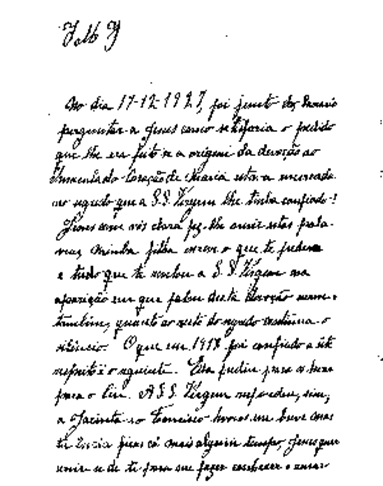 J. M. J.
No dia 17-12-1927, foi junto do Sacrario
perguntar a Jesus como satisfaria o pedido
que lhe era feito se a origem da devoção ao
Immaculado Coração de Maria estava encerrada
no segredo que a S.S. Virgem lhe tinha confiado?
Jesus com voz clara fez-lhe ouvir estas pala-
vras, Minha filha escreve o que te pedem
e tudo que te revelou a S.S. Virgem na
aparição em que falou desta devoção
também, quanto ao resto do segredo continua o
silêncio. O que em 1917 foi confiado a este
respeito é o seguinte. Ela pediu para os levar
para o Céu. A S.S. Virgem respondeu, sim,
a Jacinta e o Francisco levo-os em breve mas
tu ficas cá mais algum tempo, Jesus quer
servir-se de ti para me fazer conhecer e amar